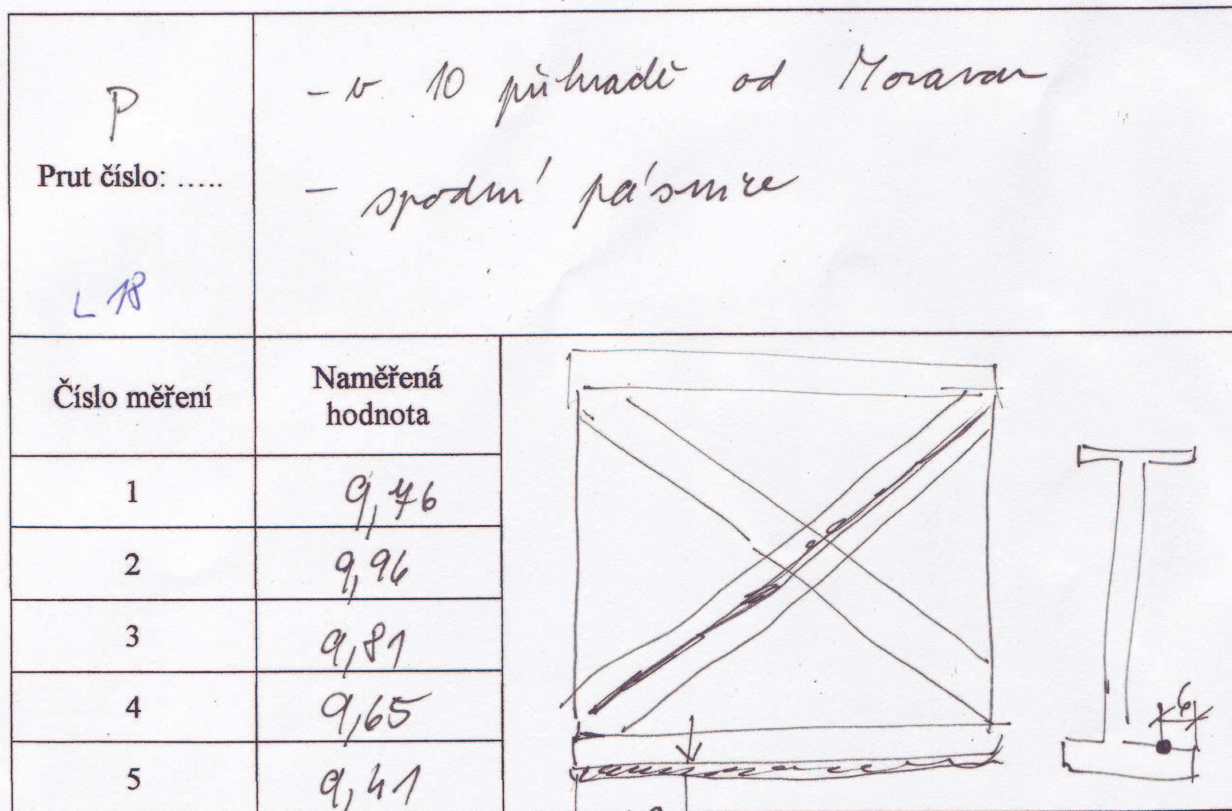 P
Prut číslo: .....
L 18
- v 10 příhradě od Moravan
- spodní pásnice
Číslo měření
Naměřená
hodnota
1
9,76
2
9,96
3
9,81
4
9,65
5
9,41
6